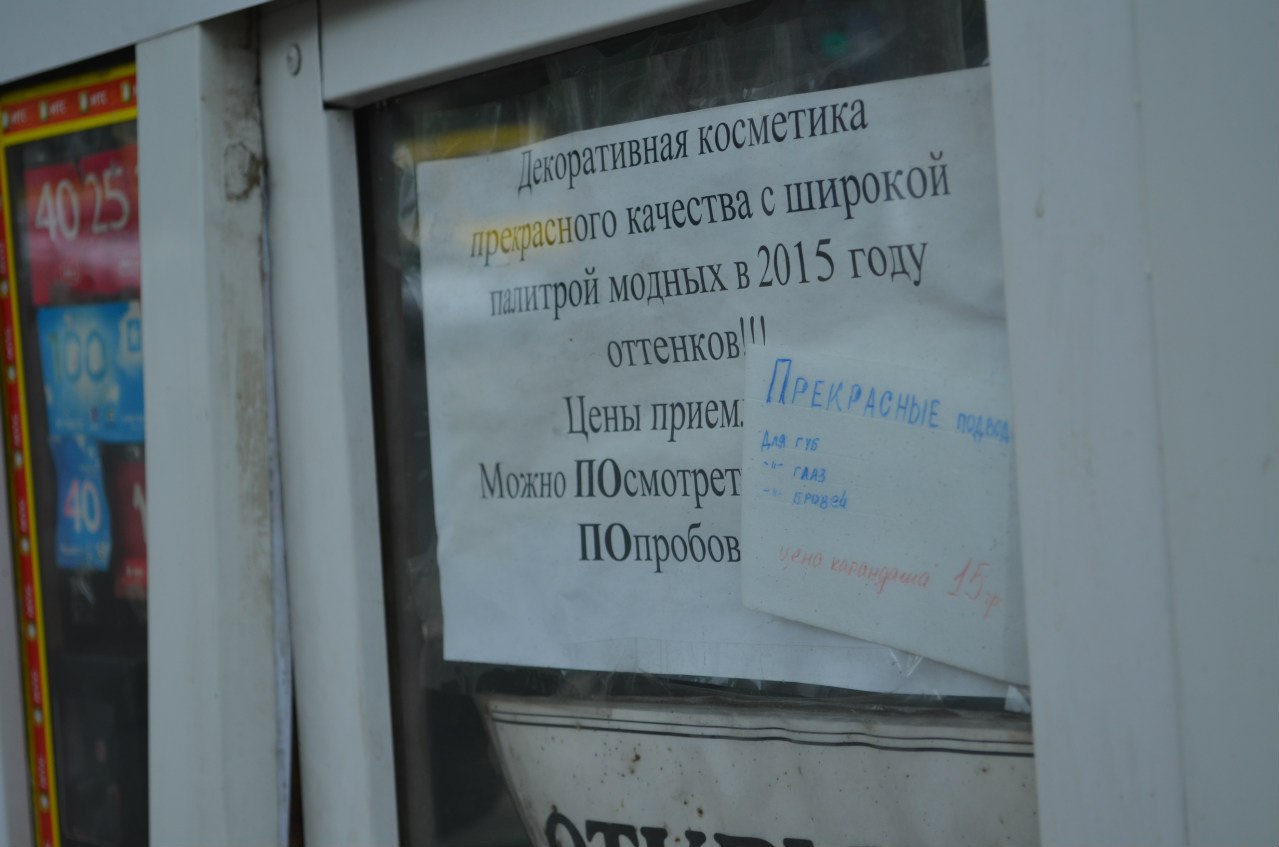 Декоративная косметика
прекрасного качества с широкой
палитрой модных в 2015 году
оттенков!!!
Цены прием
Можно ПОсмотрет
ПОпробов
ПРЕКРАСНЫЕ подвод
Для губ
-"- глаз
-"- бровей
цена карандаша 15 гр
40 25
100
40
МТС МТС МТС